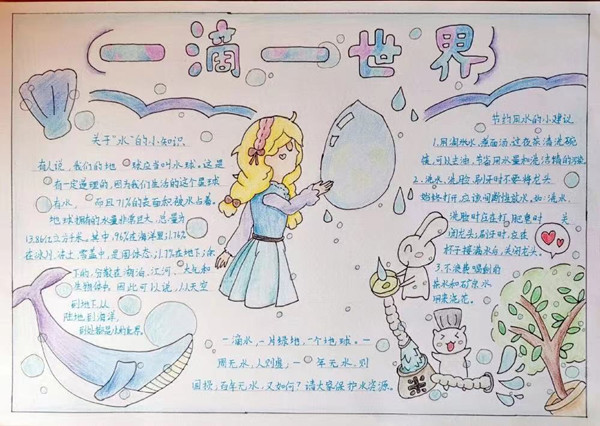 一滴一世界
关于“水”的小知识
有人说,我们的地球应当叫水球。这是
有一定道理的,因为我们生活的这个星球
有水,而且71%的表面积被水占着。
地球拥有的水量非常巨大,总量为
13.86亿立方千米。其中,96%在海洋里,1.76%
在冰川、冻土、雪盖中,是固体态;1.7%在地下;余
下的,分散在湖泊、江河、大气和
生物体中。因此可以说,从天空
到地下,从
陆地到海洋,
到处都是水的世界。
节约用水的小建议
1.用淘米水、煮面汤、过夜茶清洗碗
筷,可以去油,节省用水量和洗洁精的污染
2.洗水、洗脸、刷牙时不要将龙头
始终打开,应该间断性放水。如:洗水、
洗脸时应在打肥皂时关
闭龙头;刷牙时,应在
杯子接满水后,关闭龙头。
3.不浪费喝剩的
茶水和矿泉水
用来浇花。
一滴水,一片绿地,一个地球。一
周无水,人别虚,一年无水,别
国掠,百年无水,又如何?请大家保护水资源。